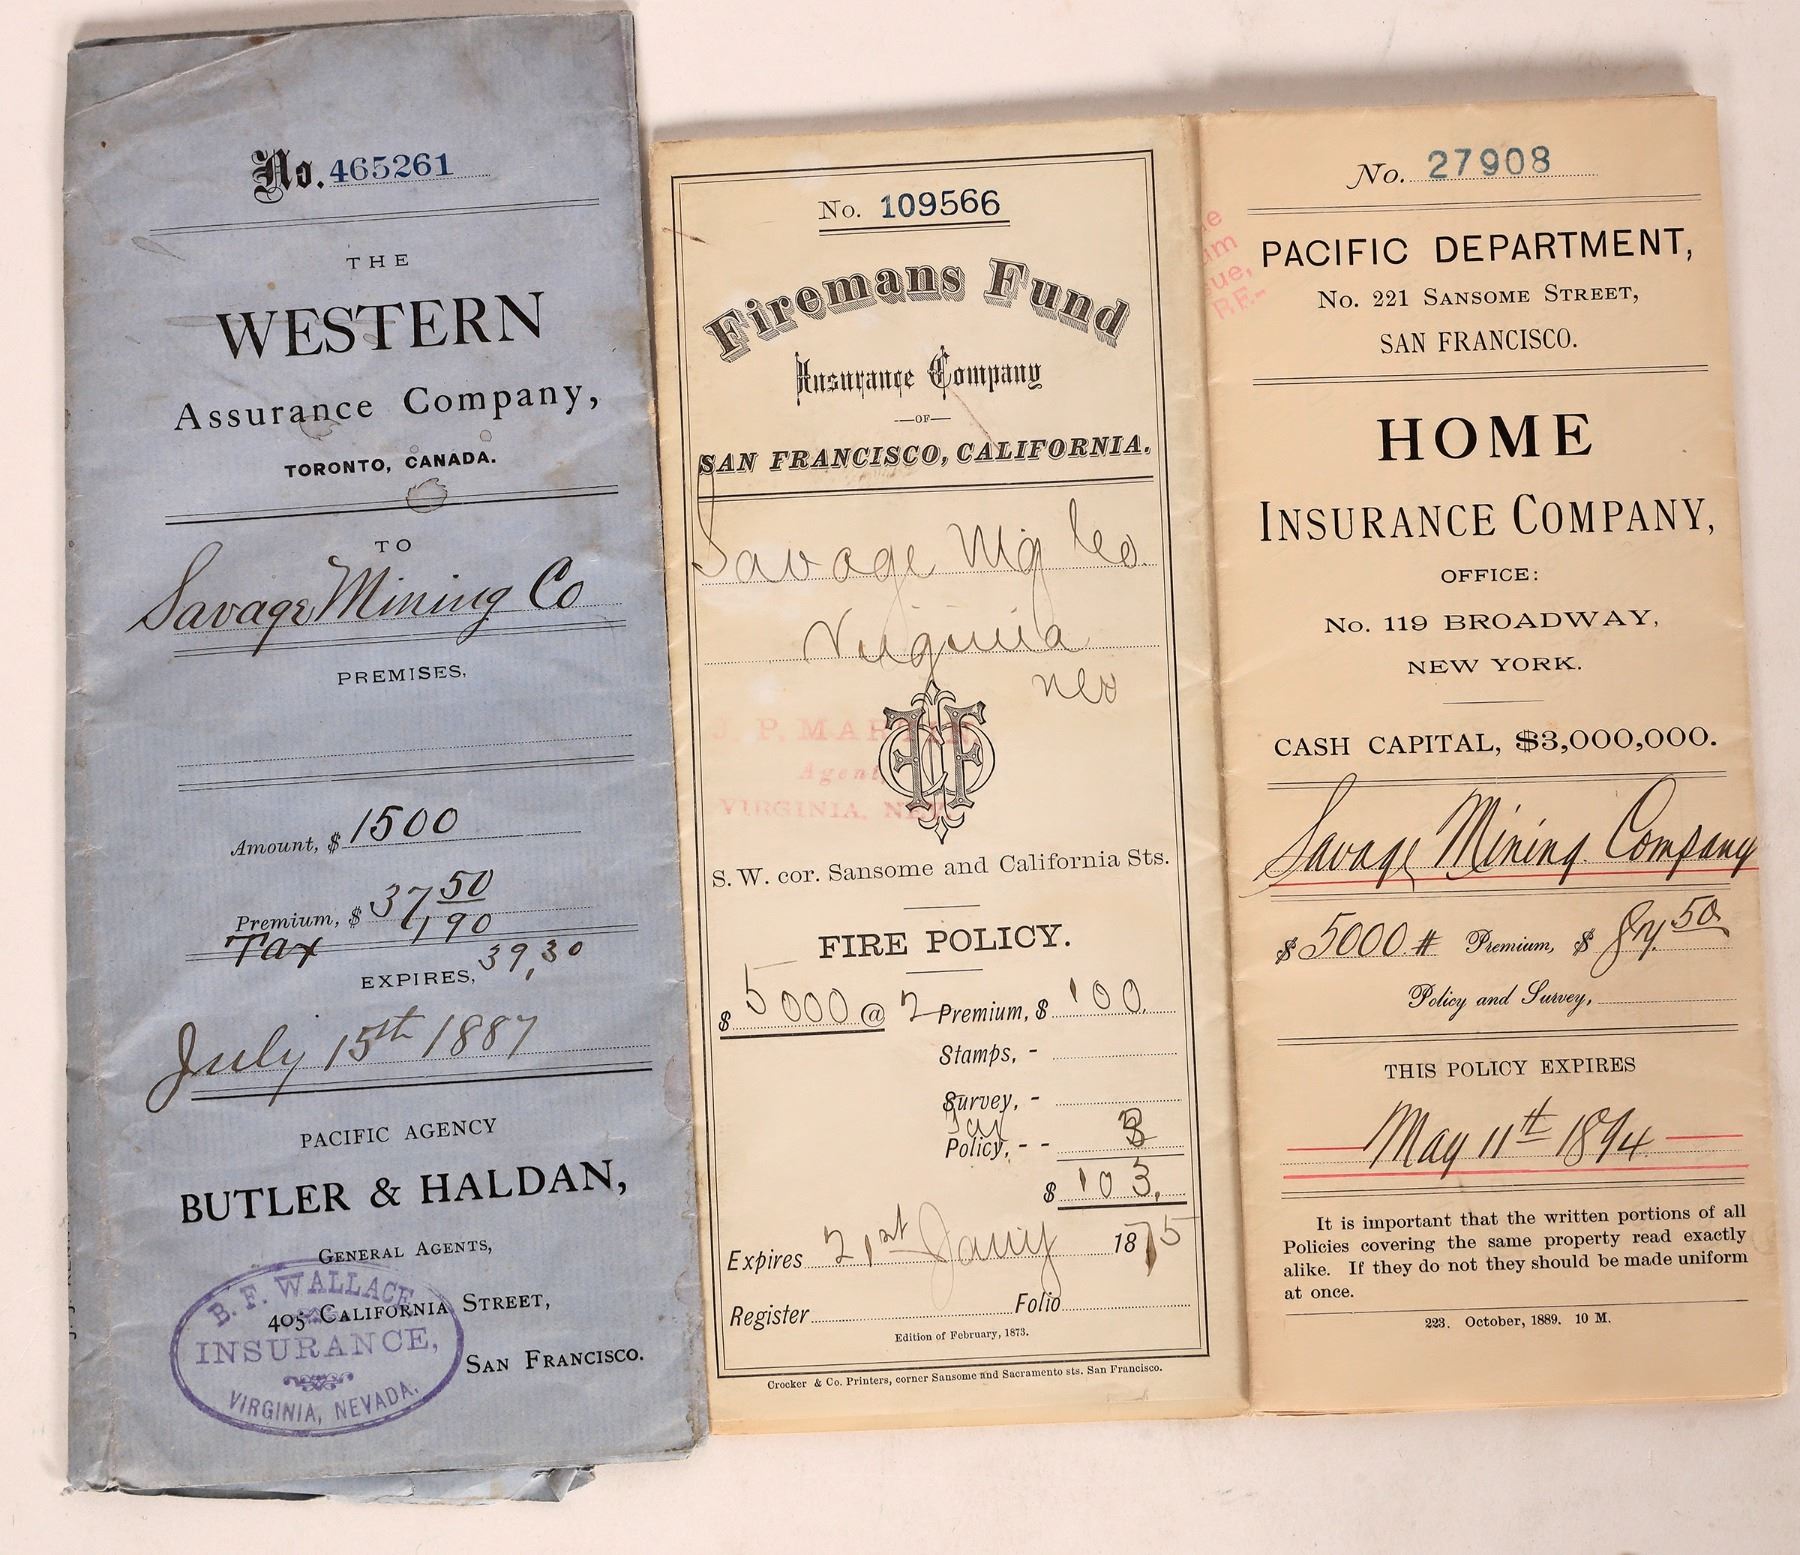 No. 465261
THE
WESTERN
Assurance Company,
TORONTO, CANADA.
TO
Savage Mining Co
PREMISES,
Amount, $ 1500
Premium, $ 37 50
Tax 1,90
EXPIRES, 39,30
July 15th 1887
PACIFIC AGENCY
BUTLER & HALDAN,
GENERAL AGENTS,
405 CALIFORNIA STREET,
SAN FRANCISCO.
B. F. WALLACE
INSURANCE,
VIRGINIA, NEVADA.
No. 109566
Firemans Fund
Insurance Company
—OF—
SAN FRANCISCO, CALIFORNIA.
Savage Mg Co.
Virginia
Nev
J. P. MARTIN,
Agent
VIRGINIA, NEV
S. W. cor. Sansome and California Sts.
FIRE POLICY.
$ 5000 @ 2 Premium, $ 100.
Stamps, -
Survey, -
Tax
Policy, - - 3
$ 103.
Expires 21st Jany 1875
Register Folio
Edition of February, 1873.
Crocker & Co. Printers, corner Sansome and Sacramento sts. San Francisco.
No. 27908
PACIFIC DEPARTMENT,
No. 221 SANSOME STREET,
SAN FRANCISCO.
HOME
INSURANCE COMPANY,
OFFICE:
No. 119 BROADWAY,
NEW YORK.
CASH CAPITAL, $3,000,000.
Savage Mining Company
$ 5000 # Premium, $ 87.50
Policy and Survey,
THIS POLICY EXPIRES
May 11th 1894
It is important that the written portions of all
Policies covering the same property read exactly
alike. If they do not they should be made uniform
at once.
223. October, 1889. 10 M.